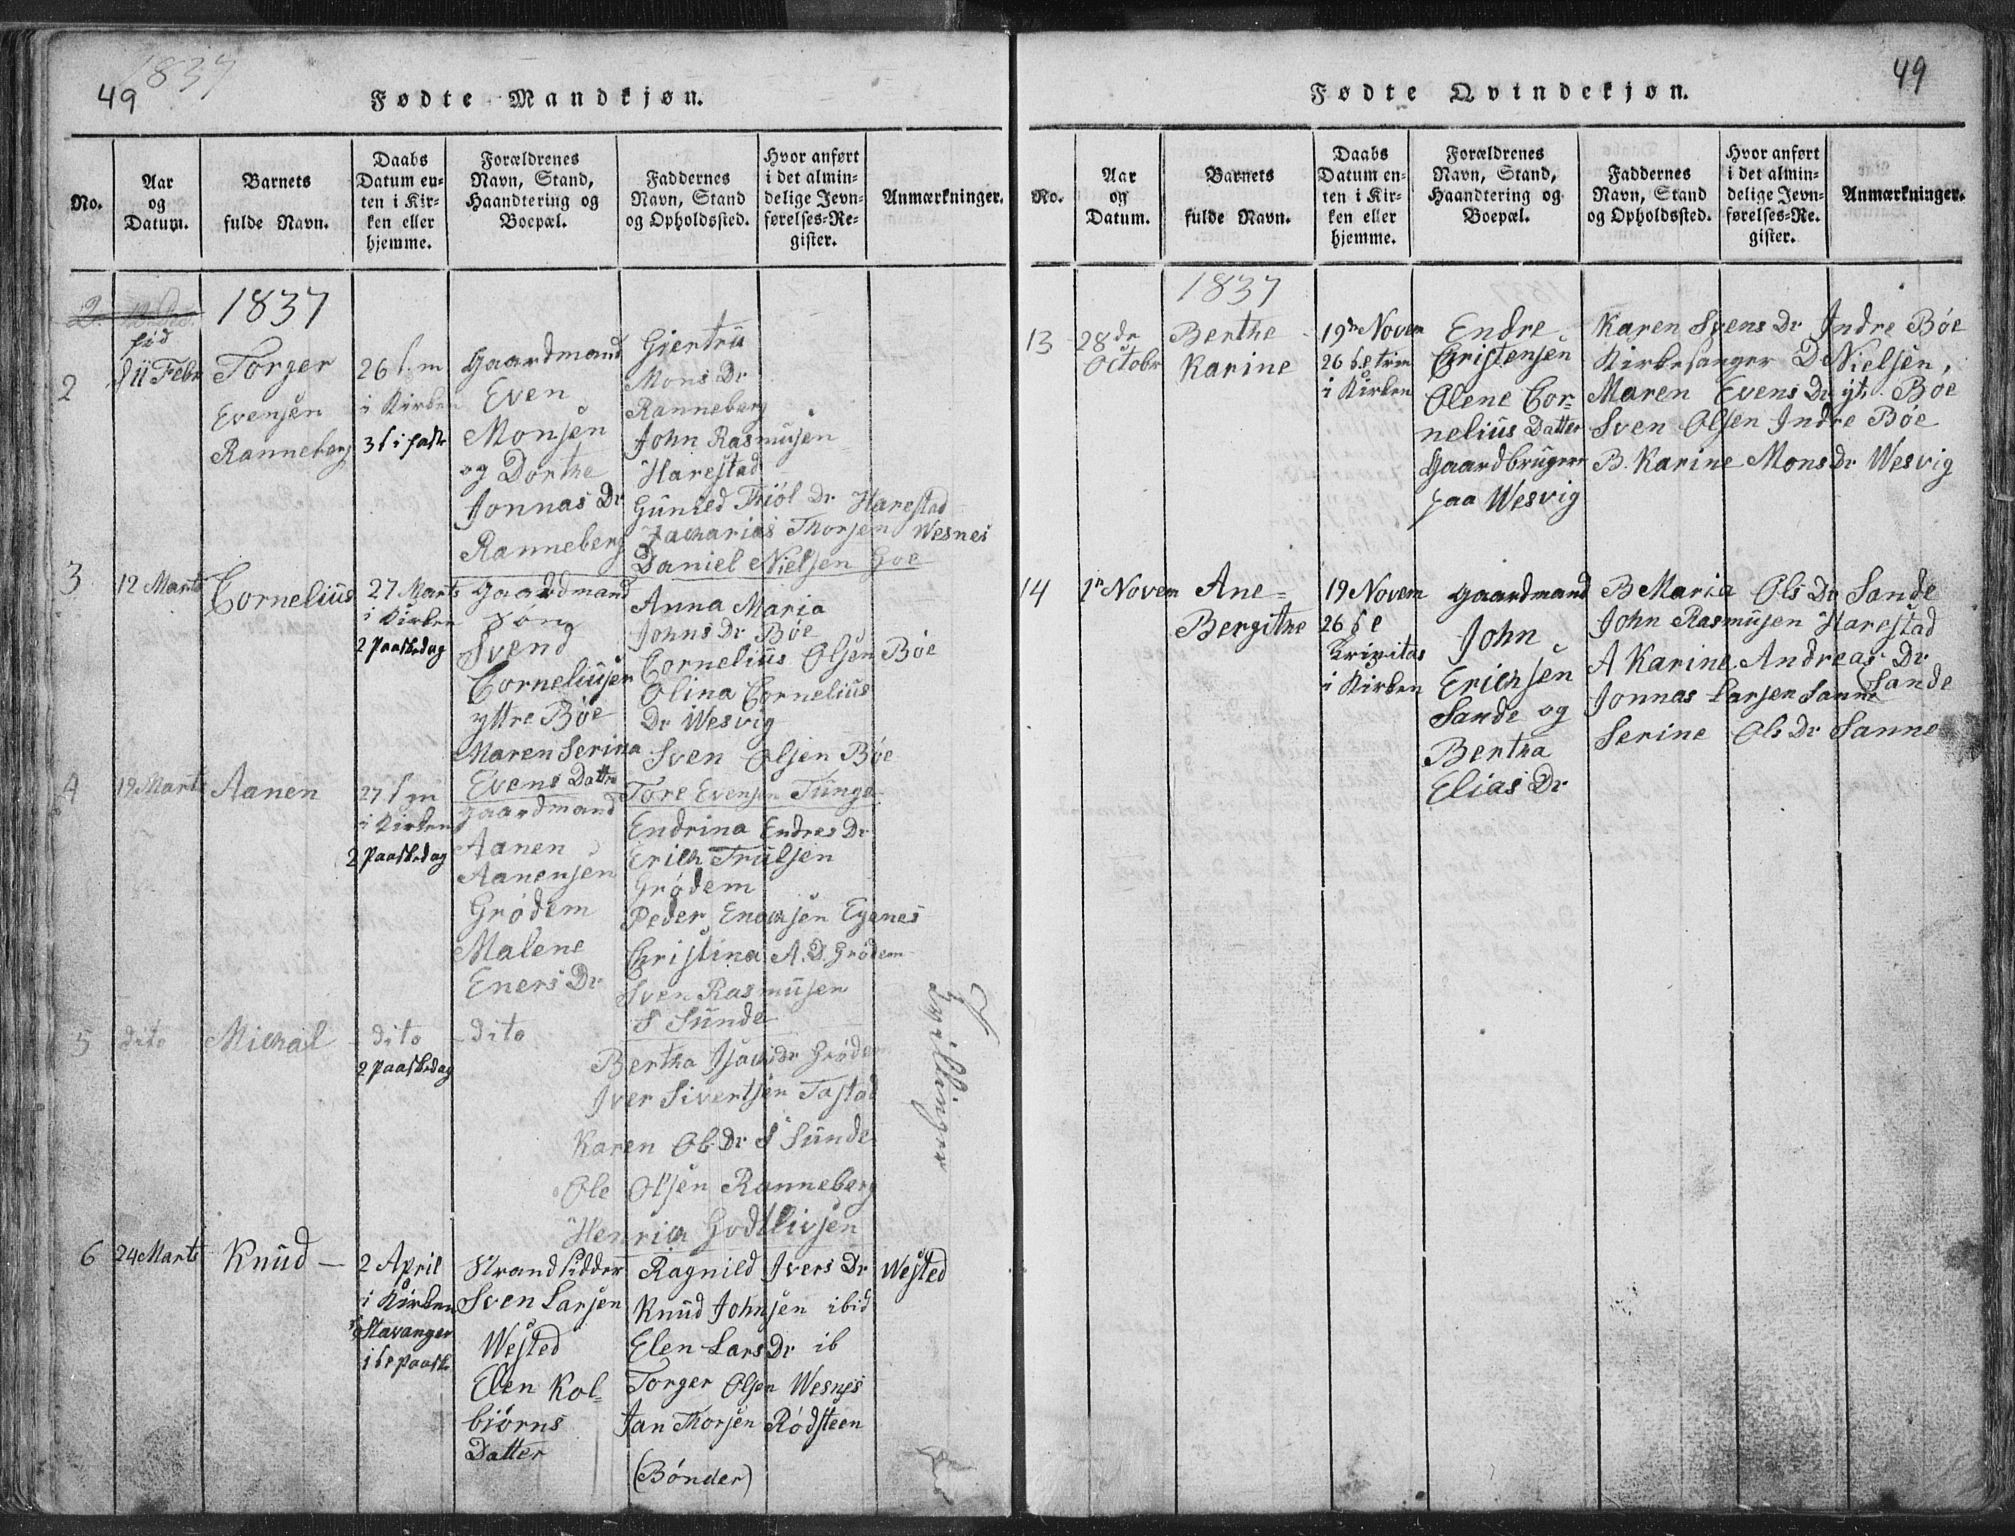 1837
49
Fødte Mandkjøn.
No.
Aar
og
Datum.
Barnets
fulde Navn.
Daabs
Datum en-
ten i Kir-
ken eller
hjemme.
Forældrenes
Navn, Stand,
Haandtering og
Boepæl.
Faddernes
Navn, Stand
og Opholdssted.
Hvor anført
i det almin-
delige Jevn-
førelses-Re-
gister.
Anmærkninger.
2
1837
2
fød
d 11 Febr
Torger
Evensen
Ranneberg
26 f. m
i Kirken
3 f i fast
Gaardmand
Even
Monsen
og Dorthe
Jonnas Dr
Ranneberg
Gjertru
Mons Dr
Ranneberg
John Rasmusen
Harestad
Gunild Thiol Dr Harestad
Zacharias Thorsen Wesnes
Daniel Nielsen Goe
3
12 Marts
Cornelius
27 Marts
i Kirken
2 Paaskedag
Gaardmand
Svend
Corneliusen
yttre Bøe
Maren Serina
Evens Datter
Anna Maria
Johns Dr Bøe
Cornelius Olsen Bøe
Olina Cornelius
Dr Wesvig
Sven Olsen Bøe
Tore Evensen Tunge
4
19 Marts
Aanen
27 f m
i Kirken
2 Paaskedag
Gaardmand
Aanen
Aanensen
Grødem
Malene
Eners Dr
Endrina Endres Dr
Erich Trulsen
Grødem
Peder Enochsen Egenes
Christina A. D. Grødem
Sven Rasmusen
S Sunde
5
dito
Michail
dito
2 Paaskedag
dito
Bertha Isachs Dr Grødem
Iver Sivertsen Tastad
Karen Ols Dr S Sunde
Ole Olsen Ranneberg
Henrich Godtlivsen
Tvillinger
6
24 Marts
Knud
2 April
i Kirken
Stavanger
1 s e Paaske
Strandsidder
Sven Larsen
Wested
Elen Kol-
biørns
Datter
Ragnild Ivers Dr Wested
Knud Johnsen ibid
Elen Lars Dr ib
Torger Olsen Wesnes
Jan Thorsen Rødsteen
(Bønder)
49
Fødte Qvindekjøn.
No.
Aar
og
Datum.
Barnets
fulde Navn.
Daabs
Datum en-
ten i Kir-
ken eller
hjemme.
Forældrenes
Navn, Stand,
Haandtering og
Boepæl.
Faddernes
Navn, Stand
og Opholdssted.
Hvor anført
i det almin-
delige Jevn-
førelses-Re-
gister.
Anmærkninger.
1837
13
28 de
Octobr
Berthe
Karine
19 de Novem
26 s. e trin
i Kirken
Endre
Christensen
Olene Cor-
nelius Datter
Gaardbruger
paa Wesvig
Karen Svens Dr Indre Bøe
Kirkesanger D Nielsen,
Maren Evens Dr yt. Bøe
Sven Olsen Indre Bøe
B. Karine Mons Dr Wesvig
14
1 n Novem
Ane
Bergithe
19 Novem
26 s e
trinitas
i Kirken
Gaardmand
John
Erichsen
Sande og
Bertha
Elias Dr
B Maria Ols Dr Sande
John Rasmusen Harestad
A Karine Andreas Dr
Sande
Jonnas Larsen Sanne
Serine Ols Dr Sanne